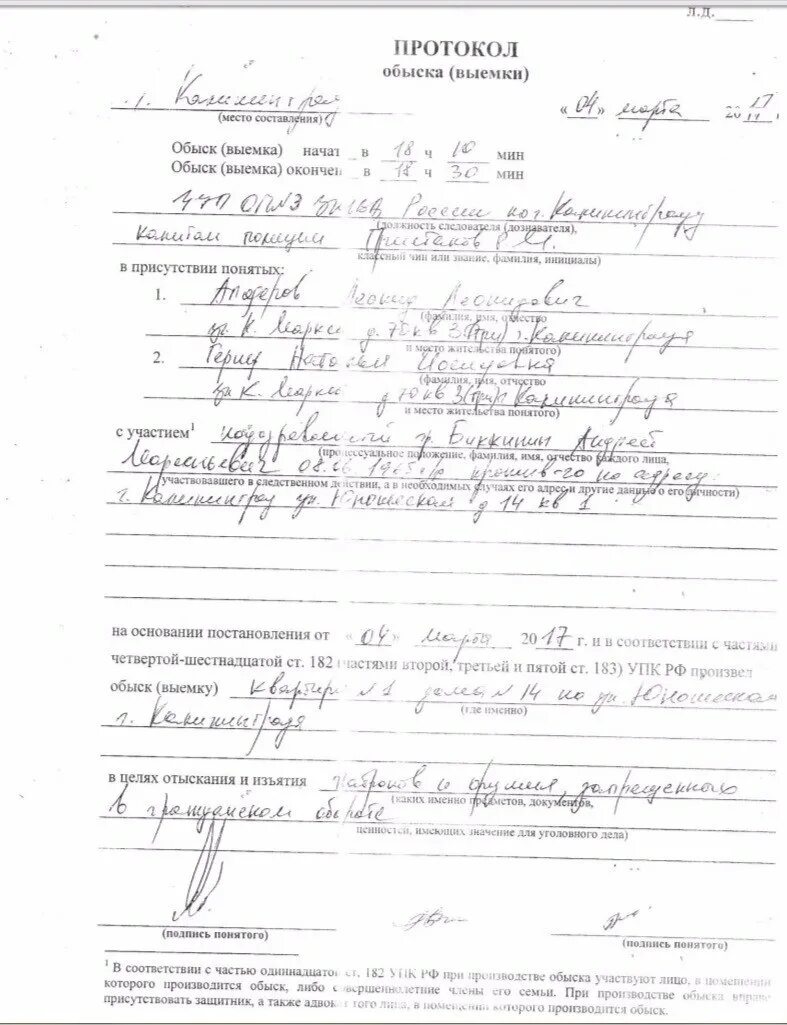 Л.Д.
ПРОТОКОЛ
обыска (выемки)
г. Калининград
(место составления)
«04» марта 2017 г.
Обыск (выемка) начат в 18 ч 10 мин
Обыск (выемка) окончен в 18 ч 30 мин
России по г. Калининграду
(должность следователя (дознавателя),
капитан полиции
классный чин или звание, фамилия, инициалы)
в присутствии понятых:
1. Леонид Леонидович
(фамилия, имя, отчество
ул. К. Маркса д. 70 кв 3 г. Калининграда
и место жительства понятого)
2. Наталья
(фамилия, имя, отчество
ул К. Маркса д 70 кв 3 Калининграда
и место жительства понятого)
с участием¹ подозреваемый гр. Биккинин Андрей
(процессуальное положение, фамилия, имя, отчество каждого лица,
прожив-го по адресу
участвовавшего в следственном действии, а в необходимых случаях его адрес и другие данные о его личности)
г. Калининград ул. Юношеская д 14 кв 1
на основании постановления от «04» марта 2017 г. и в соответствии с частями
четвертой-шестнадцатой ст. 182 (частями второй, третьей и пятой ст. 183) УПК РФ произвел
обыск (выемку) квартире №1 дома №14 по ул. Юношеская
(где именно)
г. Калининграда
в целях отыскания и изъятия патронов и оружия, запрещенного
(каких именно предметов, документов,
в гражданском обороте
ценностей, имеющих значение для уголовного дела)
(подпись понятого)
(подпись понятого)
¹ В соответствии с частью одиннадцатой ст. 182 УПК РФ при производстве обыска участвуют лицо, в помещении
которого производится обыск, либо совершеннолетние члены его семьи. При производстве обыска вправе
присутствовать защитник, а также адвокат того лица, в помещении которого производится обыск.